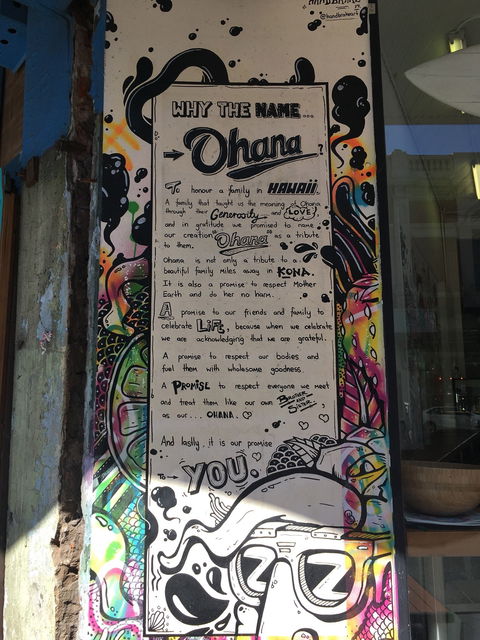 @handbrakeart
WHY THE NAME...
Ohana?
To honour a family in HAWAII.
A family that taught us the meaning of Ohana
through their Generosity and LOVE,
and in gratitude we promised to name
our creation "Ohana" as a tribute
to them.
Ohana is not only a tribute to a
beautiful family miles away in KONA.
It is also a promise to respect Mother
Earth and do her no harm.
A promise to our friends and family to
celebrate LIFE, because when we celebrate
we are acknowledging that we are grateful.
A promise to respect our bodies and
fuel them with wholesome goodness.
A PROMISE to respect everyone we meet
and treat them like our own BROTHER AND SISTER,
as our... OHANA.
And lastly, it is our promise
to YOU.